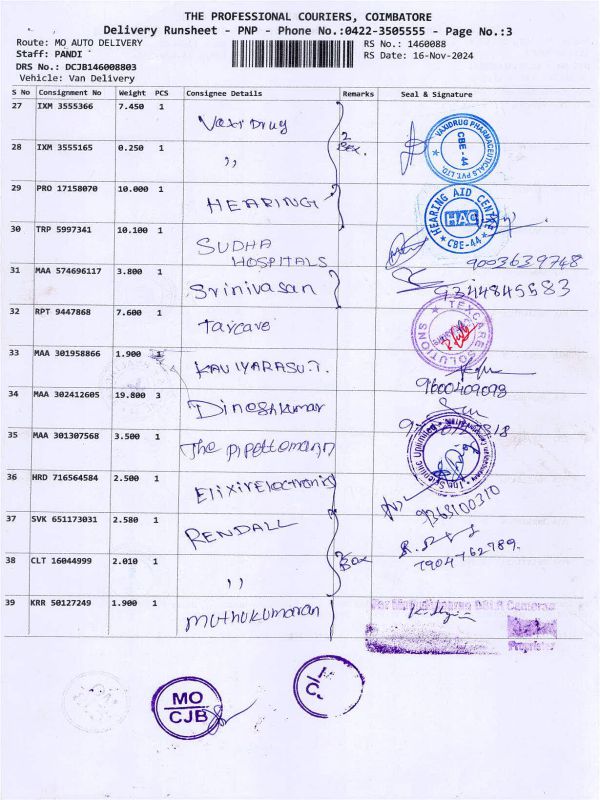 THE PROFESSIONAL COURIERS, COIMBATORE
Delivery Runsheet - PNP - Phone No.:0422-3505555 - Page No.:3
Route: MO AUTO DELIVERY
RS No.: 1460088
Staff: PANDI
RS Date: 16-Nov-2024
DRS No.: DCJB146008803
Vehicle: Van Delivery
S No Consignment No Weight PCS Consignee Details Remarks Seal & Signature
27 IXM 3555366 7.450 1 Vaxi Drug 2 Box.
28 IXM 3555165 0.250 1 ,,
VAXIDRUG PHARMACEUTICALS PVT. LTD. CBE-44
29 PRO 17158070 10.000 1 HEARING
HEARING AID CENTRE HAC CBE-44
30 TRP 5997341 10.100 1 SUDHA HOSPITALS 9003639748
31 MAA 574696117 3.800 1 Srinivasan 9344845583
32 RPT 9447868 7.600 1 Taxcare
TEXCARE SOLUTIONS
33 MAA 301958866 1.900 1 KAVIYARASU.T. 9600409098
34 MAA 302412605 19.800 3 Dineshkumar
35 MAA 301307568 3.500 1 The Pipettemann
36 HRD 716564584 2.500 1 Elixir Electronics 9363100310
37 SVK 651173031 2.580 1 RENDALL 2 Box
7904762789.
38 CLT 16044999 2.010 1 ,,
39 KRR 50127249 1.900 1 Muthukumaran
Cameras
Proprietor
MO
CJB